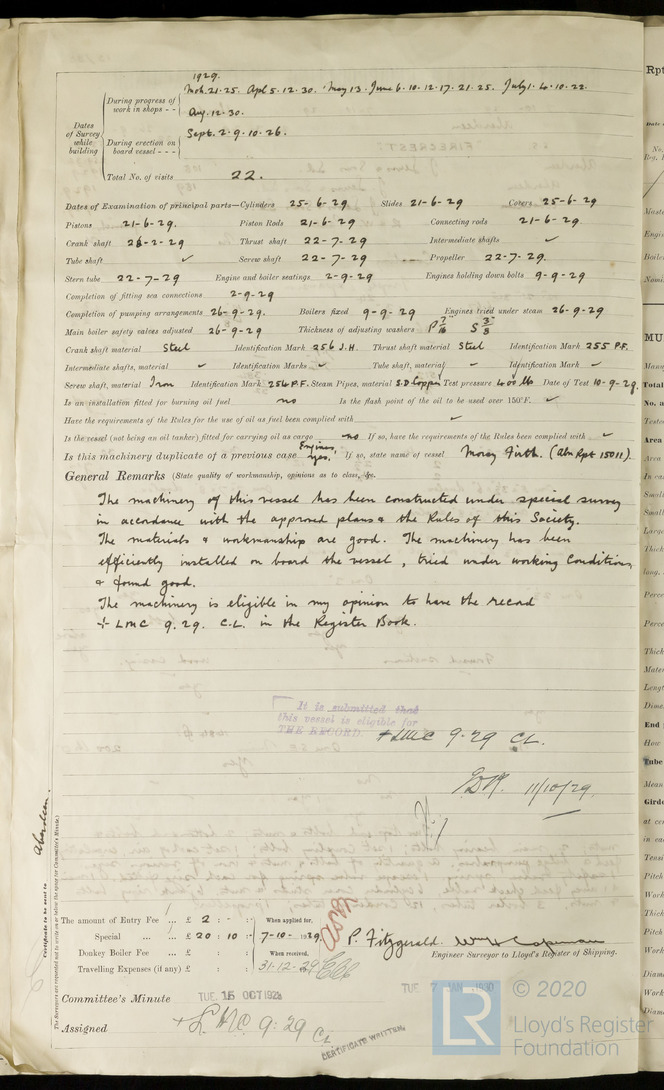 1929.
Mch. 21. 25. Apl 5. 12. 30. May 13. June 6. 10. 12. 17. 21. 25. July 1. 4. 10. 22.
During progress of work in shops - -
Aug. 12. 30.
Dates of Survey while building
Sept. 2. 9. 10. 26.
During erection on board vessel - - -
Total No. of visits 22.
Dates of Examination of principal parts—Cylinders 25-6-29 Slides 21-6-29 Covers 25-6-29
Pistons 21-6-29. Piston Rods 21-6-29 Connecting rods 21-6-29.
Crank shaft -2-29 Thrust shaft 22-7-29 Intermediate shafts ✓
Tube shaft ✓ Screw shaft 22-7-29 Propeller 22-7-29.
Stern tube 22-7-29 Engine and boiler seatings 2-9-29 Engines holding down bolts 9-9-29
Completion of fitting sea connections 2-9-29
Completion of pumping arrangements 26-9-29. Boilers fixed 9-9-29 Engines tried under steam 26-9-29
Main boiler safety valves adjusted 26-9-29 Thickness of adjusting washers P 7/16 S 3/8
Crank shaft material Steel Identification Mark 256 J.H. Thrust shaft material Steel Identification Mark 255 P.F.
Intermediate shafts, material ✓ Identification Marks ✓ Tube shaft, material ✓ Identification Mark ✓
Screw shaft, material Iron Identification Mark 256 P.F. Steam Pipes, material S.D Copper Test pressure 400 lb Date of Test 10-9-29.
Is an installation fitted for burning oil fuel no Is the flash point of the oil to be used over 150°F. ✓
Have the requirements of the Rules for the use of oil as fuel been complied with ✓
Is the vessel (not being an oil tanker) fitted for carrying oil as cargo no If so, have the requirements of the Rules been complied with ✓
Is this machinery duplicate of a previous case Engines, yes. If so, state name of vessel Moray Firth. (Abn Rpt 15011).
General Remarks (State quality of workmanship, opinions as to class, &c.
The machinery of this vessel has been constructed under special survey
in accordance with the approved plans & the Rules of this Society.
The materials & workmanship are good. The machinery has been
efficiently installed on board the vessel, tried under working conditions
& found good.
The machinery is eligible in my opinion to have the record
+ LMC 9.29. C.L. in the Register Book.
It is submitted that
this vessel is eligible for
THE RECORD. + LMC 9.29 CL.
11/10/29.
Aberdeen.
Certificate to be sent to
The amount of Entry Fee ... £ 2 : - : When applied for,
Special ... £ 20 : 10 : 7-10-1929.
P. Fitzgerald.
Donkey Boiler Fee ... £ : : When received,
Engineer Surveyor to Lloyd's Register of Shipping.
Travelling Expenses (if any) £ : : 31-12-29
Committee's Minute TUE. 15 OCT 1929
TUE 7 JAN 1930
Assigned + LMC 9.29 CL
CERTIFICATE WRITTEN.
© 2020
LR
Lloyd's Register
Foundation